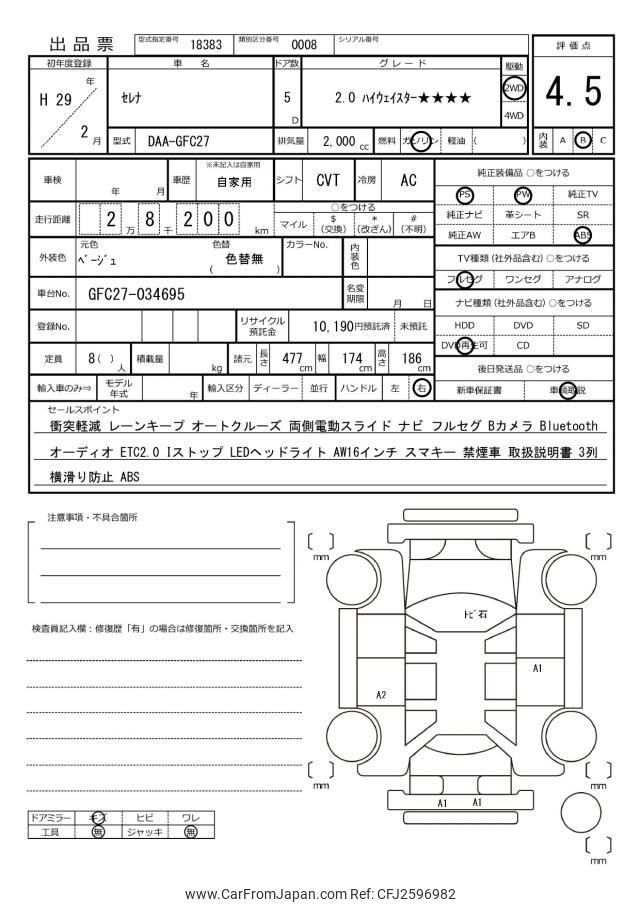 出品票 型式指定番号 18383 類別区分番号 0008 シリアル番号
評価点
4.5
内装 A B C
初年度登録 車名 ドア数 グレード 駆動
H 29 年 2 月
セレナ 5 D 2.0 ハイウェイスター★★★★ 2WD
4WD
型式 DAA-GFC27 排気量 2,000 cc 燃料 ガソリン 軽油 ( )
車検 年 月 車歴 ※未記入は自家用 自家用 シフト CVT 冷房 AC
走行距離 2 万 8 千 2 0 0 km
○をつける
マイル $ (交換) * (改ざん) # (不明)
外装色 元色 ﾍﾞｰｼﾞｭ 色替 ( 色替無 ) カラーNo. 内装色
車台No. GFC27-034695 名変期限 月 日
登録No. リサイクル預託金 10,190円預託済 未預託
定員 8( )人 積載量 kg 諸元 長さ 477 cm 幅 174 cm 高さ 186 cm
輸入車のみ⇒ モデル年式 年 輸入区分 ディーラー 並行 ハンドル 左 右
純正装備品 ○をつける
PS PW 純正TV
純正ナビ 革シート SR
純正AW エアB ABS
TV種類 (社外品含む) ○をつける
フルセグ ワンセグ アナログ
ナビ種類 (社外品含む) ○をつける
HDD DVD SD
DVD再生可 CD
後日発送品 ○をつける
新車保証書 車輌取説
セールスポイント
衝突軽減 レーンキープ オートクルーズ 両側電動スライド ナビ フルセグ Bカメラ Bluetooth
オーディオ ETC2.0 Iストップ LEDヘッドライト AW16インチ スマキー 禁煙車 取扱説明書 3列
横滑り防止 ABS
注意事項・不具合箇所
検査員記入欄：修復歴「有」の場合は修復箇所・交換箇所を記入
mm
mm
トビ石
A1
A2
mm
mm
A1 A1
mm
ドアミラー キズ ヒビ ワレ
工具 無 ジャッキ 無
www.CarFromJapan.com Ref: CFJ2596982